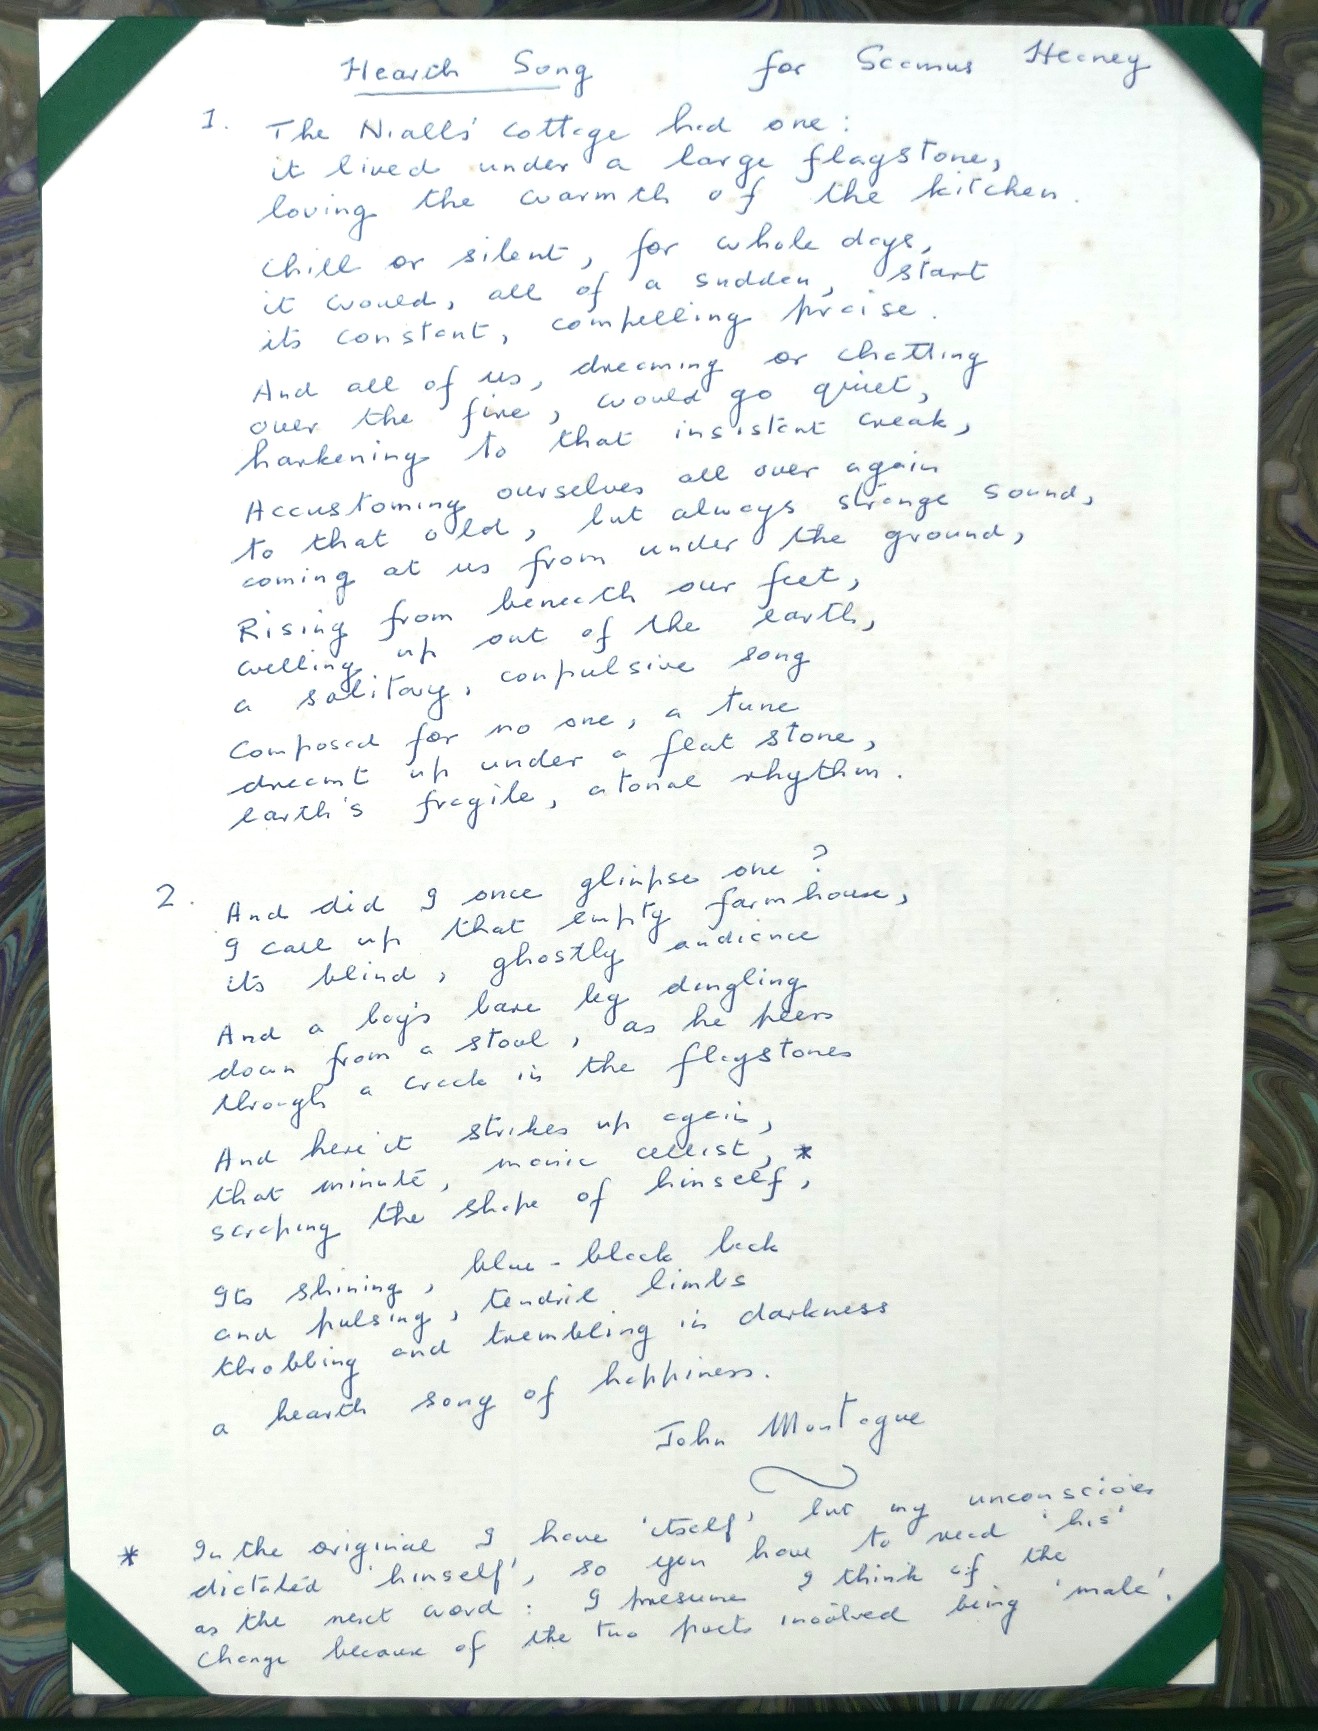 Hearth Song for Seamus Heaney
1. The Nialls' cottage had one:
it lived under a large flagstone,
loving the warmth of the kitchen.
Chill or silent, for whole days,
it would, all of a sudden, start
its constant, compelling praise.
And all of us, dreaming or chatting
over the fire, would go quiet,
harkening to that insistent creak,
Accustoming ourselves all over again
to that old, but always strange sound,
coming at us from under the ground,
Rising from beneath our feet,
welling up out of the earth,
a solitary, conpulsive song
Composed for no one, a tune
dreamt up under a flat stone,
earth's fragile, atonal rhythm.
2. And did I once glimpse one?
I call up that empty farmhouse,
its blind, ghostly audience
And a boy's bare leg dangling
down from a stool, as he peers
through a crack in the flagstones
And here it strikes up again,
that minute, manic cellist, *
scraping the shape of himself,
Its shining, blue-black back
and pulsing, tendril limbs
throbbing and trembling in darkness
a hearth song of happiness.
John Montague
* In the original I have 'itself', but my unconscious
dictated 'himself', so you have to read 'his'
as the next word: I presume I think of the
change because of the two poets involved being 'male'.